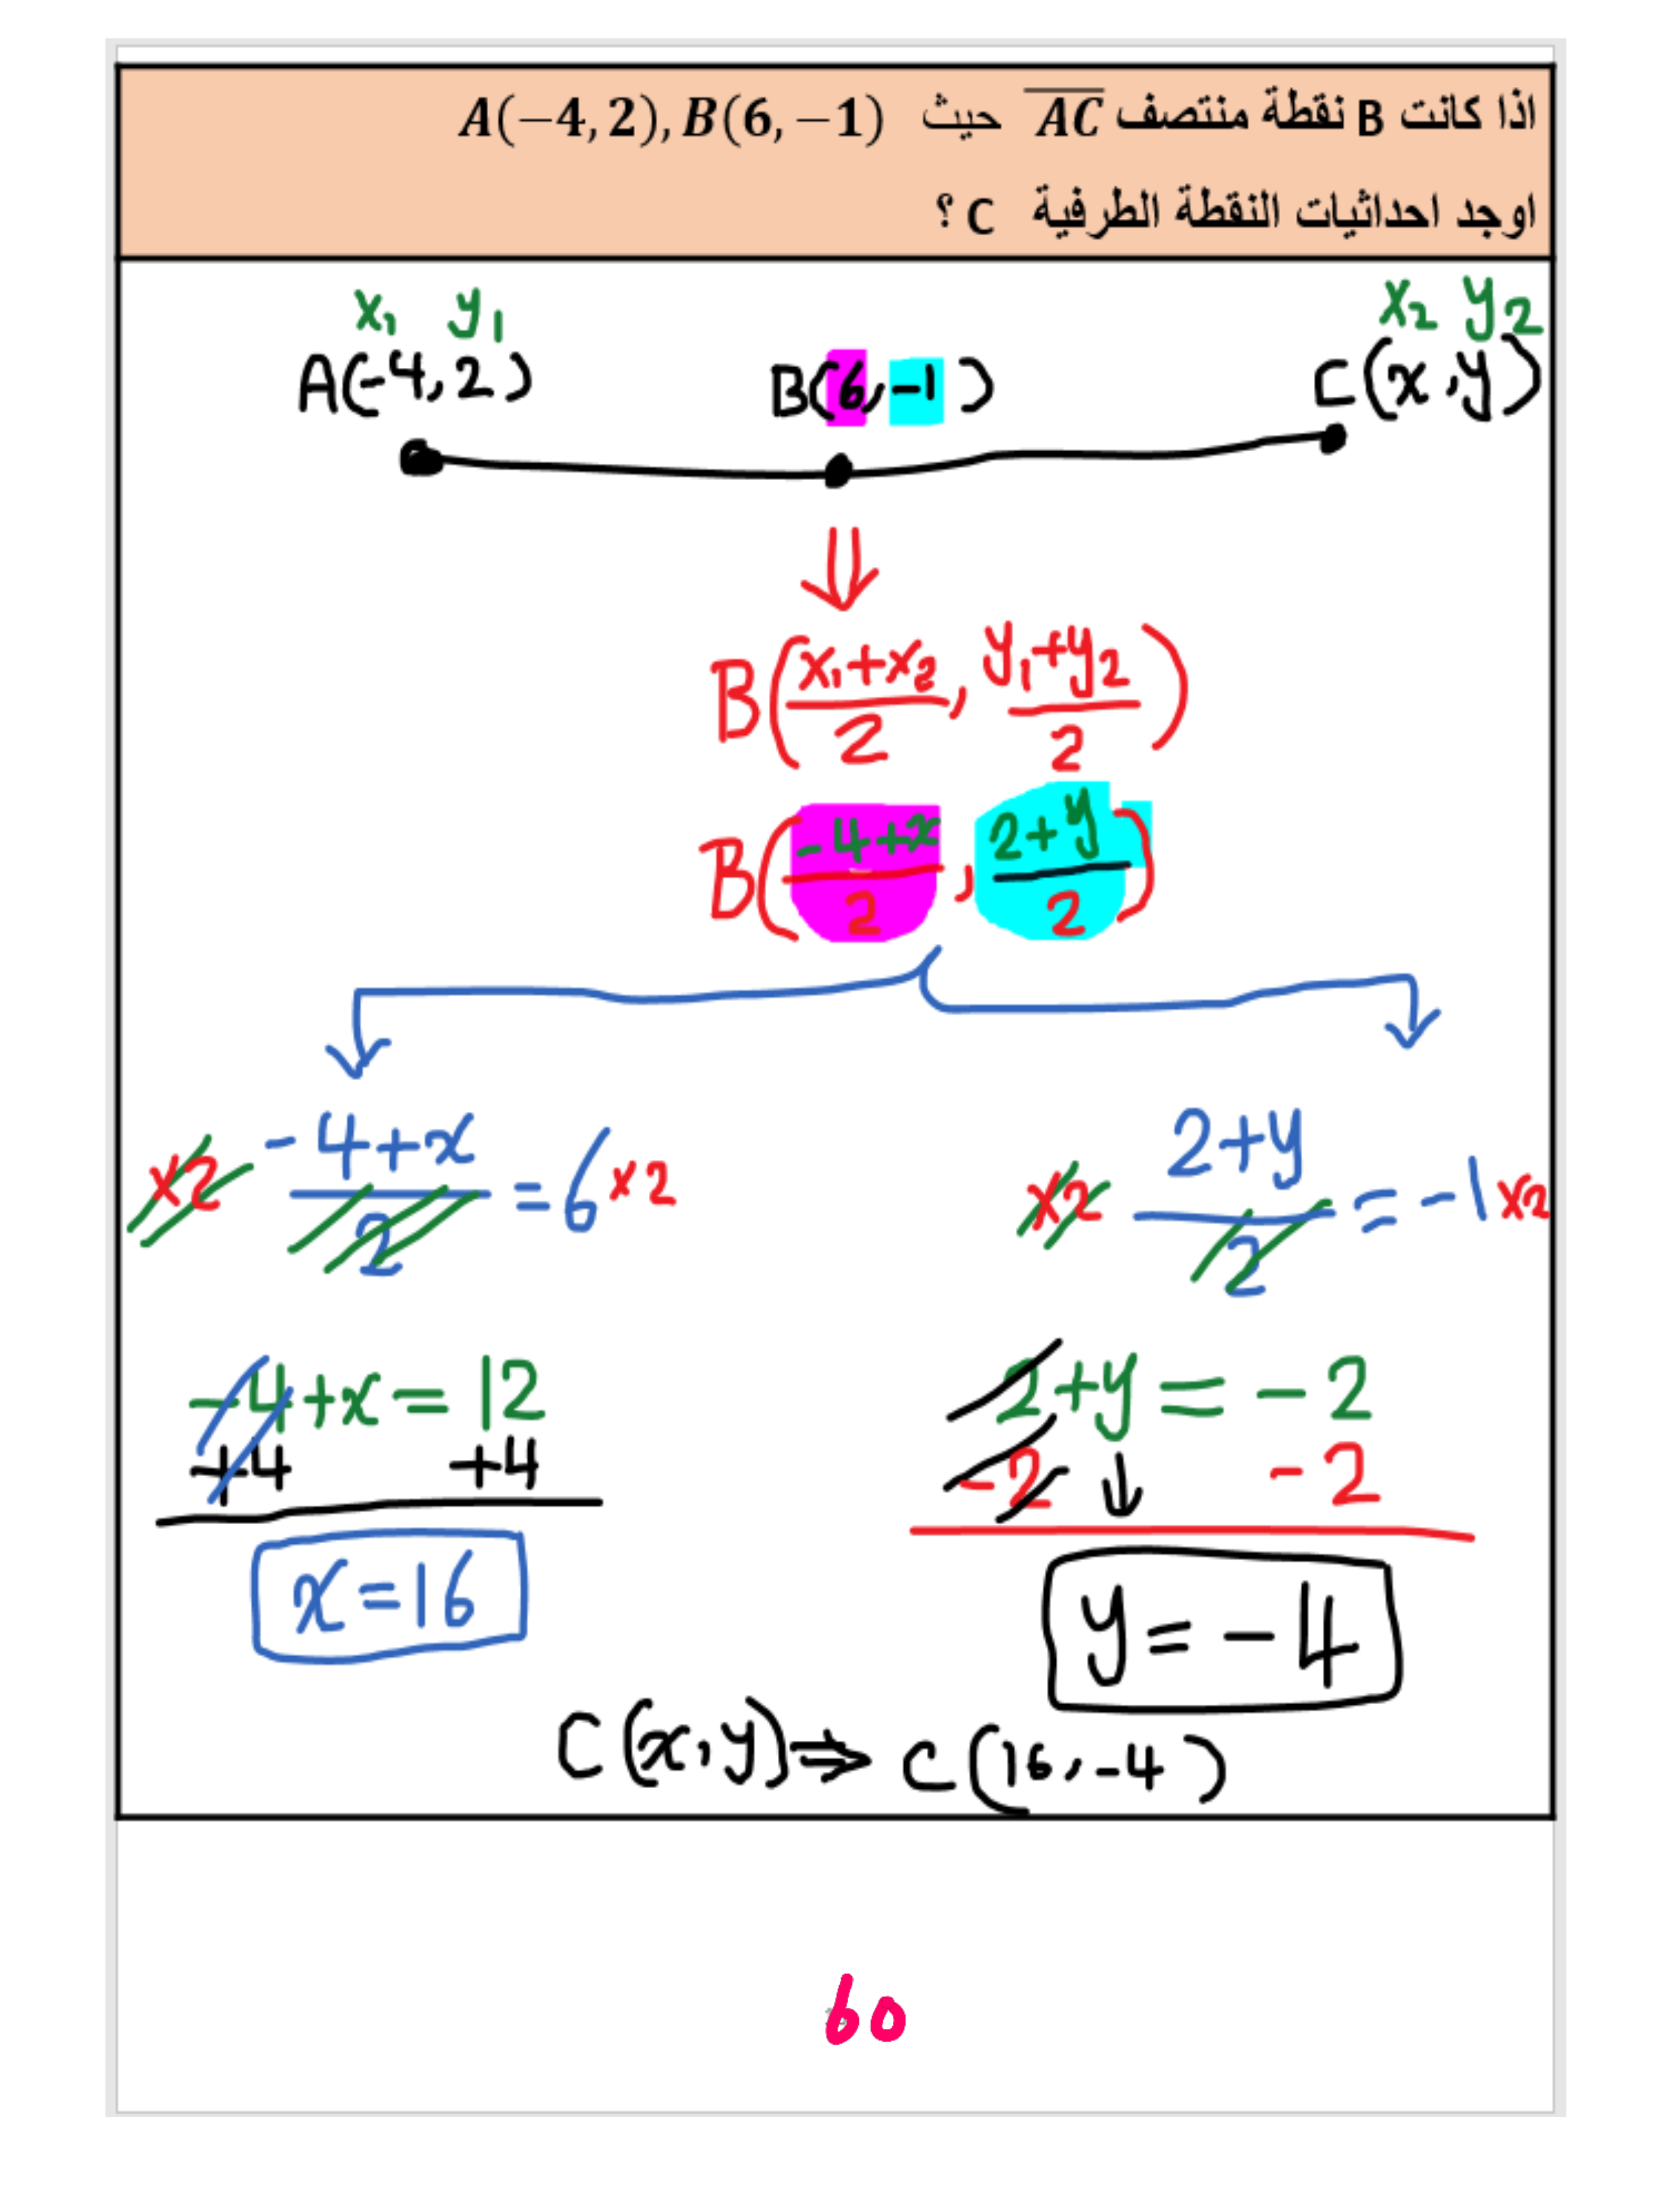 اذا كانت B نقطة منتصف AC حيث A(−4, 2), B(6, −1)
اوجد احداثيات النقطة الطرفية C ؟
x₁ y₁ x₂ y₂
A(-4,2) B(6,-1) C(x,y)
B(x₁+x₂/2, y₁+y₂/2)
B(-4+x/2, 2+y/2)
x2 -4+x/2 = 6 x2 x2 2+y/2 = -1 x2
-4+x=12 2+y=-2
+4 +4 -2 -2
x=16 y=-4
C(x,y)⇒ C(16,-4)
60